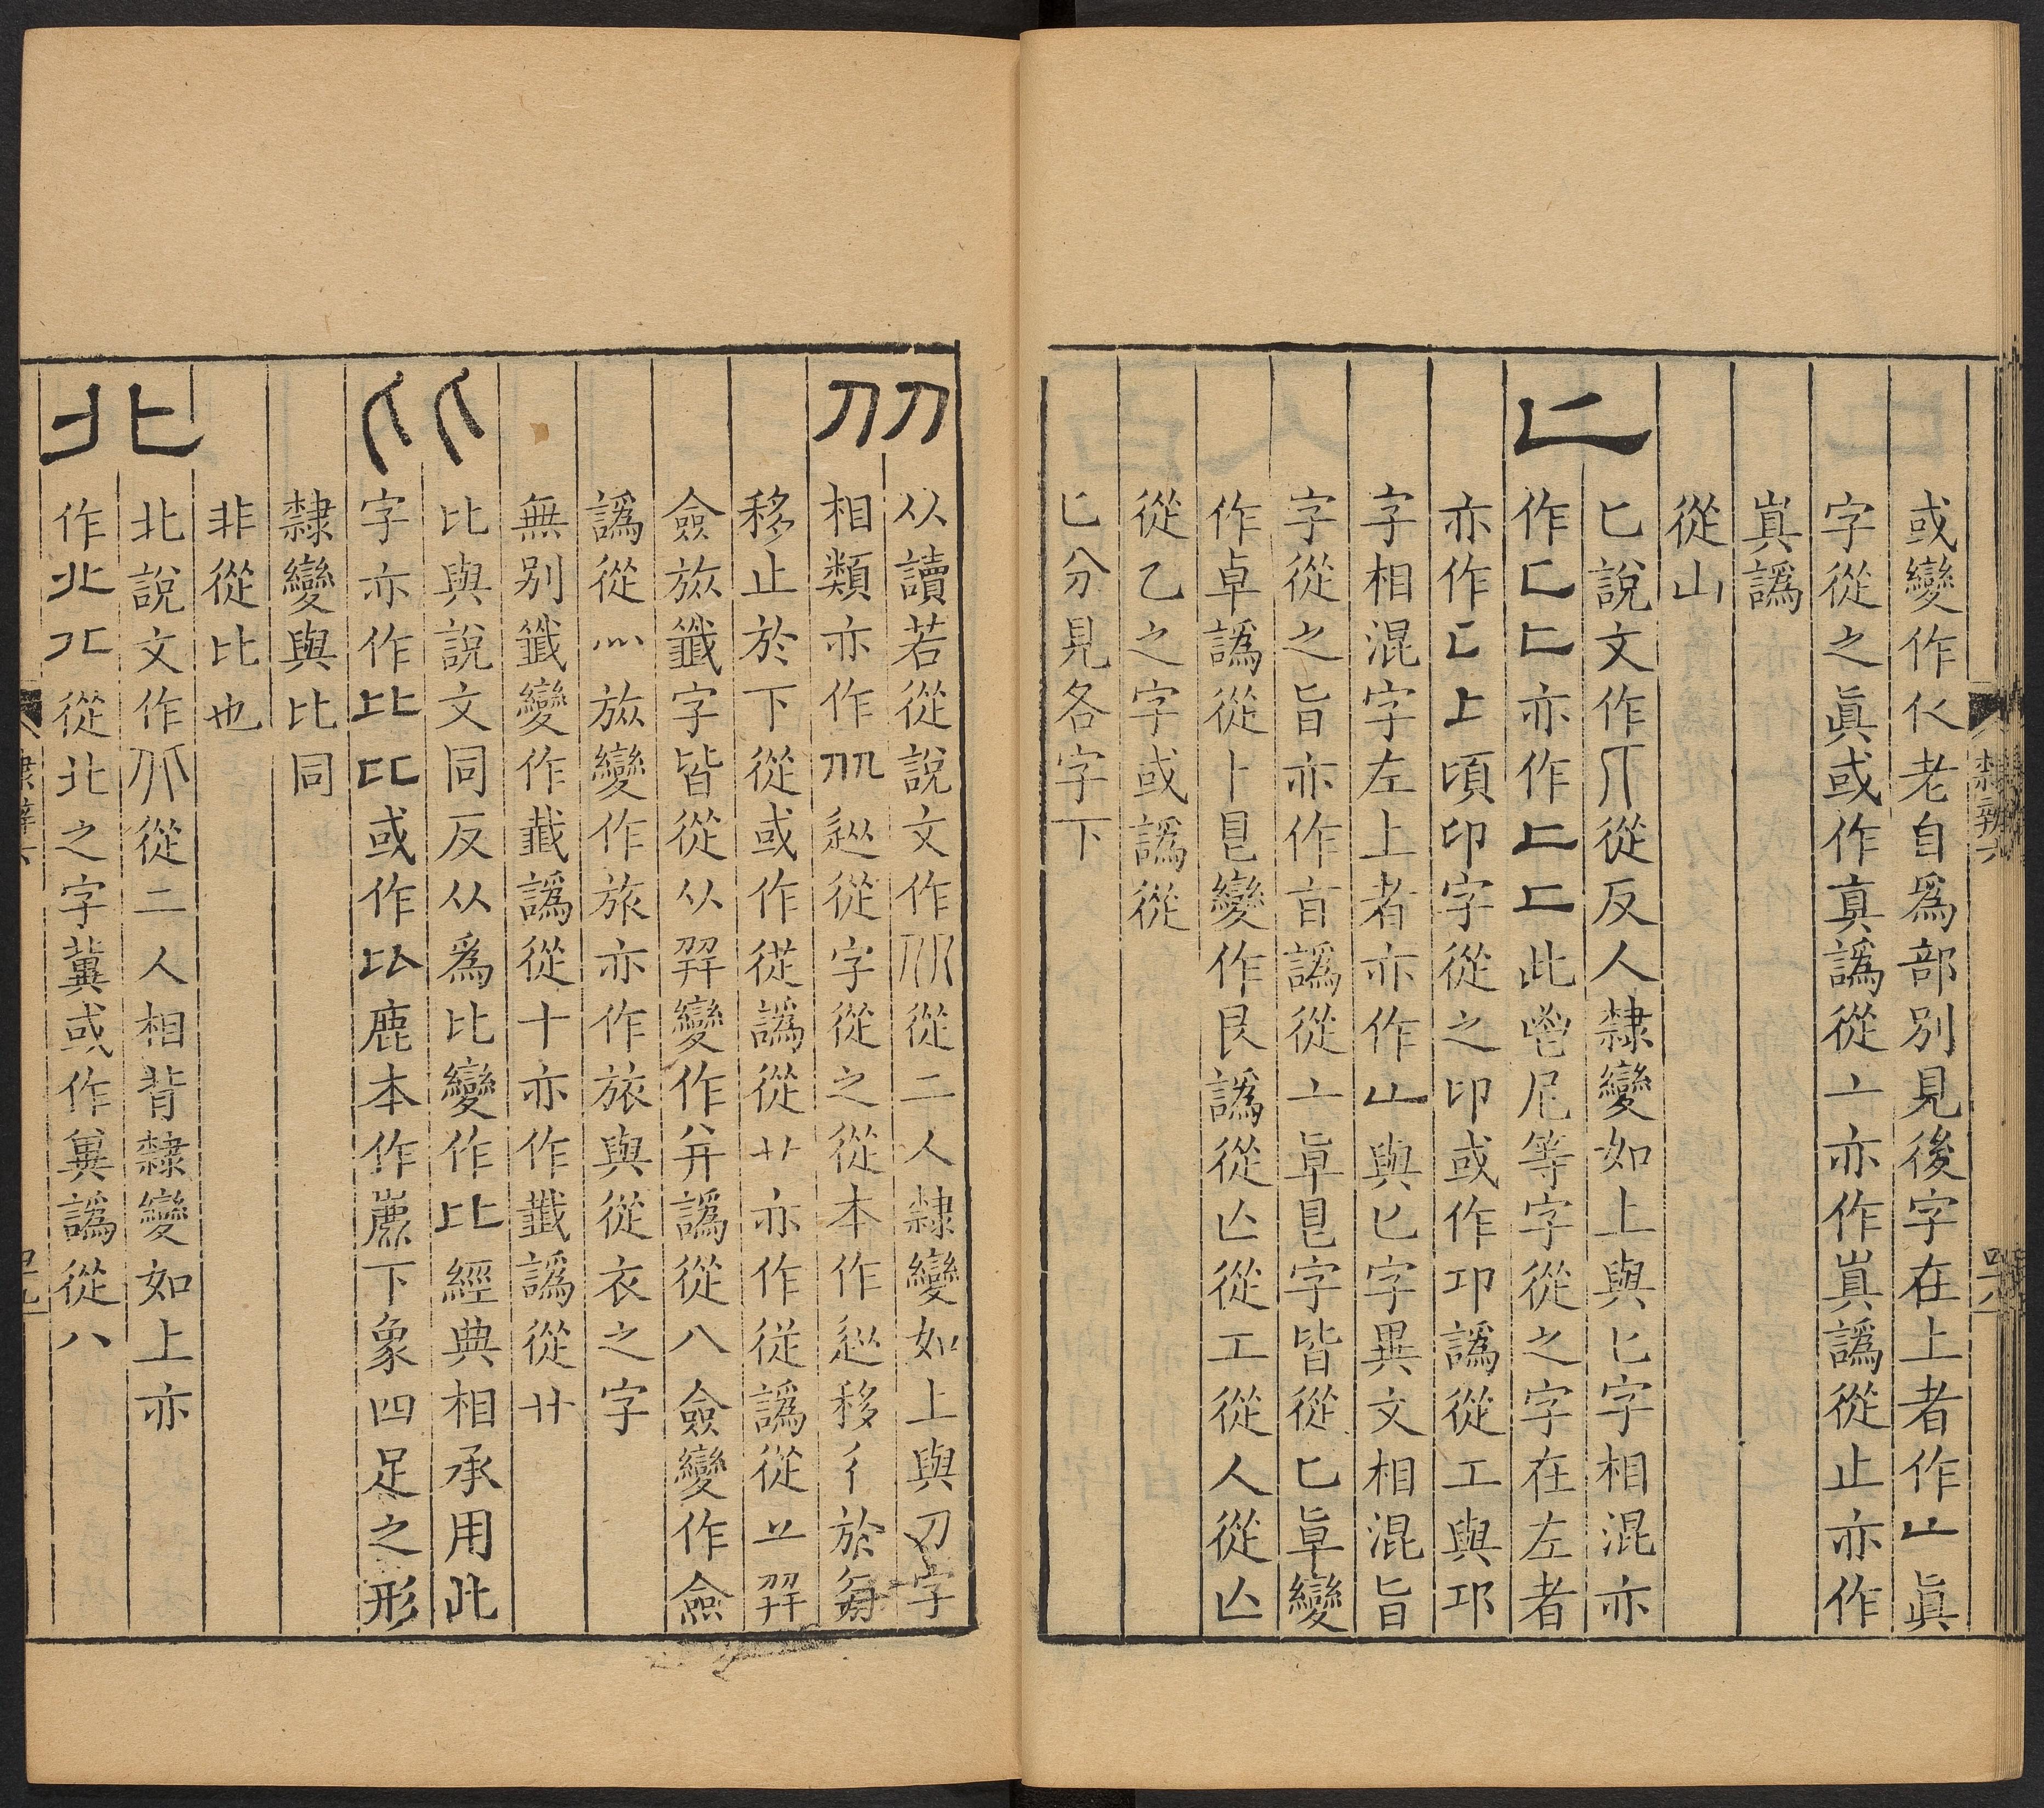 或變作亻老自爲部別見後字在上者作𠂉眞
字從之眞或作真譌從亠亦作嵮譌從止亦作
嵮譌
從山
匕
匕說文作從反人隸變如上與匕字相混亦
作匕亦作此皀尼等字從之字在左者
亦作上頃卬字從之卬或作卭譌從工與邛
字相混字左上者亦作與匕字異文相混旨
字從之旨亦作㫖譌從亠𠦝皀字皆從匕𠦝變
作卓譌從卜皀變作艮譌從亾從工從人從亾
從乙之字或譌從
匕分見各字下
隸辨六
从
从讀若從說文作从從二人隸變如上與刀字
相類亦作䢐從字從之從本作䢐移彳於
移止於下從或作從譌從艹亦作従譌從䒑幷
僉㫃韱字皆從从幷變作并譌從八僉變作僉
譌從灬㫃變作旅亦作旅與從衣之字
無別韱變作韱譌從十亦作韱譌從廾
比
比與說文同反从爲比變作比經典相承用此
字亦作比或作鹿本作下象四足之形
隸變與比同
非從比也
北
北說文作從二人相背隸變如上亦
作從北之字冀或作兾譌從八
隸辨六